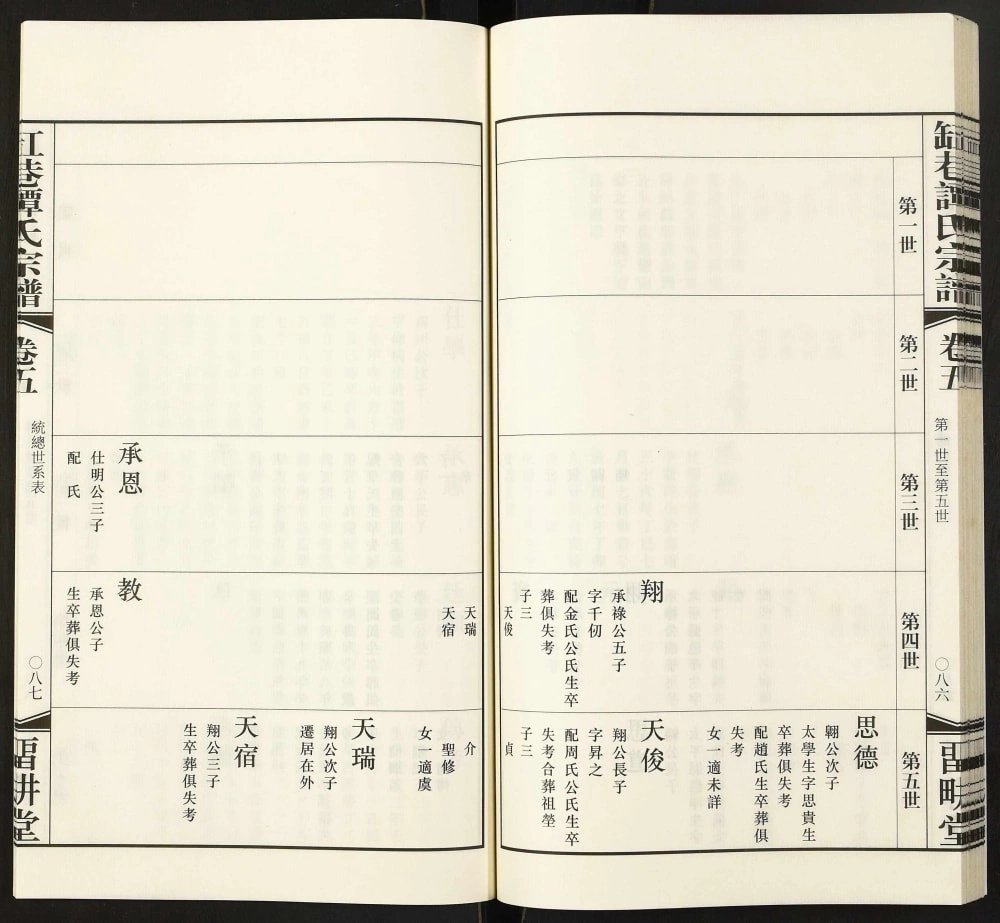 巷譚氏宗譜
卷五
第一世至第五世
〇八六
堂
第一世
第二世
第三世
第四世
翔
承祿公五子
字千仞
配金氏公氏生卒
葬俱失考
子三
天俊
第五世
思德
翺公次子
太學生字思貴生
卒葬俱失考
配趙氏生卒葬俱
失考
女一適未詳
天俊
翔公長子
字昇之
配周氏公氏生卒
失考合葬祖塋
子三
貞
承恩
仕明公三子
配 氏
天瑞
天宿
教
承恩公子
生卒葬俱失考
介
聖修
女一適虞
天瑞
翔公次子
遷居在外
天宿
翔公三子
生卒葬俱失考
巷譚氏宗譜
卷五
統總世系表
〇八七
耕堂